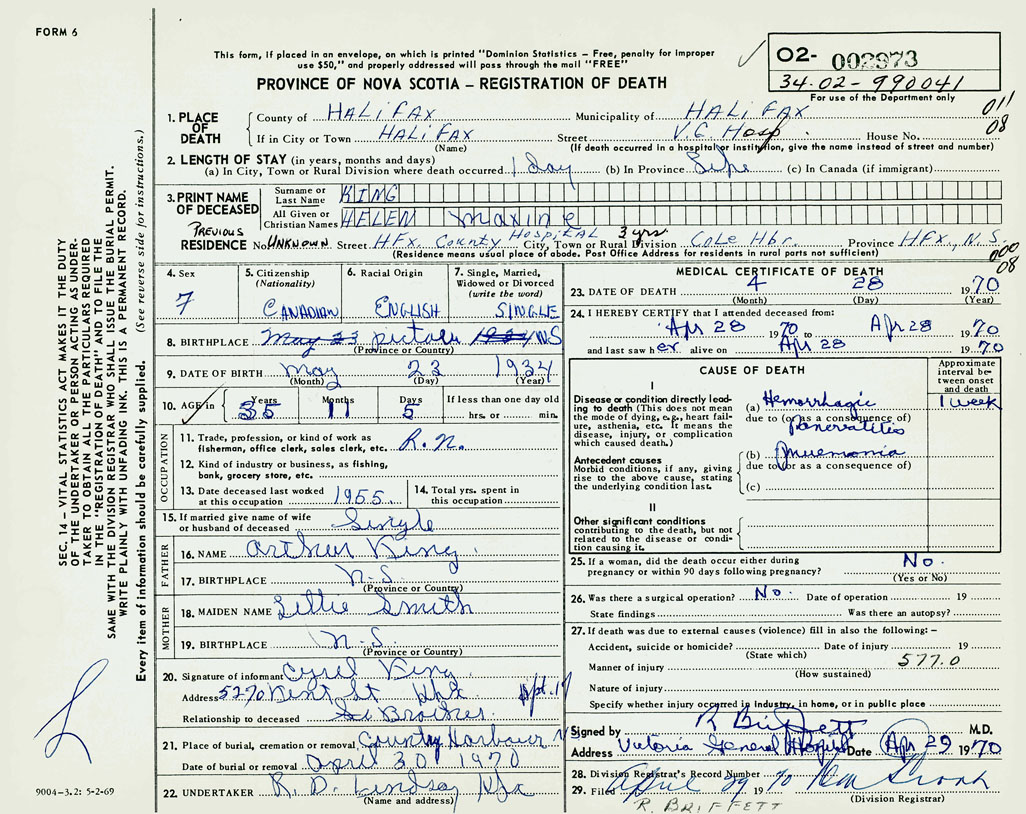 FORM 6
This form, if placed in an envelope, on which is printed "Dominion Statistics – Free, penalty for improper
use $50," and properly addressed will pass through the mail "FREE"
PROVINCE OF NOVA SCOTIA – REGISTRATION OF DEATH
O2- 002973
34.02-990041
For use of the Department only
011
08
1. PLACE OF DEATH
County of HALIFAX Municipality of HALIFAX
If in City or Town HALIFAX Street V.G Hosp. House No.
(Name) (If death occurred in a hospital or institution, give the name instead of street and number)
2. LENGTH OF STAY (in years, months and days)
(a) In City, Town or Rural Division where death occurred 1 day (b) In Province Life (c) In Canada (if immigrant)
3. PRINT NAME OF DECEASED
Surname or Last Name KING
All Given or Christian Names HELEN Maxine
PREVIOUS
RESIDENCE No. UNKNOWN Street HFX. County HOSPITAL City, Town or Rural Division 3 yrs Cole Hbr. Province HFX., N.S.
(Residence means usual place of abode. Post Office Address for residents in rural parts not sufficient)
000
08
4. Sex
7
5. Citizenship
(Nationality)
CANADIAN
6. Racial Origin
ENGLISH
7. Single, Married,
Widowed or Divorced
(write the word)
SINGLE
8. BIRTHPLACE May 23 pictou 1934 NS
(Province or Country)
9. DATE OF BIRTH May 23 1934
(Month) (Day) (Year)
10. AGE in Years Months Days If less than one day old
35 11 5 hrs. or min.
OCCUPATION
11. Trade, profession, or kind of work as
fisherman, office clerk, sales clerk, etc. R.N.
12. Kind of industry or business, as fishing,
bank, grocery store, etc.
13. Date deceased last worked
at this occupation 1955
14. Total yrs. spent in
this occupation
15. If married give name of wife
or husband of deceased Single
FATHER
16. NAME Arthur King
17. BIRTHPLACE N.S.
(Province or Country)
MOTHER
18. MAIDEN NAME Smith
19. BIRTHPLACE N.S.
(Province or Country)
20. Signature of informant Cyrel King
Address 5270 Kent St Hfx Apt. 17
Relationship to deceased Brother
21. Place of burial, cremation or removal County Harbour NS
Date of burial or removal April 30 1970
22. UNDERTAKER R. D. Lindsay Hfx
(Name and address)
MEDICAL CERTIFICATE OF DEATH
23. DATE OF DEATH 4 28 1970
(Month) (Day) (Year)
24. I HEREBY CERTIFY that I attended deceased from:
Apr 28 1970 to Apr 28 1970
and last saw her alive on Apr 28 1970
CAUSE OF DEATH
Approximate
interval be-
tween onset
and death
I
Disease or condition directly lead-
ing to death (This does not mean
the mode of dying, e.g., heart fail-
ure, asthenia, etc. It means the
disease, injury, or complication
which caused death.)
(a) Hemorrhagic 1 week
due to (or as a consequence of)
pancreatitis
Antecedent causes
Morbid conditions, if any, giving
rise to the above cause, stating
the underlying condition last.
(b) pneumonia
due to (or as a consequence of)
(c)
II
Other significant conditions
contributing to the death, but not
related to the disease or condi-
tion causing it.
25. If a woman, did the death occur either during
pregnancy or within 90 days following pregnancy? No.
(Yes or No)
26. Was there a surgical operation? No. Date of operation 19
State findings Was there an autopsy?
27. If death was due to external causes (violence) fill in also the following: –
Accident, suicide or homicide? Date of injury 19
(State which)
Manner of injury 577.0
(How sustained)
Nature of injury
Specify whether injury occurred in industry, in home, or in public place
Signed by R Briffett M.D.
Address Victoria General Hospital Date Apr 29 1970
28. Division Registrar's Record Number
29. Filed April 29 1970
(Division Registrar)
R. BRIFFETT
SEC. 14 – VITAL STATISTICS ACT MAKES IT THE DUTY
OF THE UNDERTAKER OR PERSON ACTING AS UNDER-
TAKER TO OBTAIN ALL THE PARTICULARS REQUIRED
IN THE "REGISTRATION OF DEATH" AND TO FILE THE
SAME WITH THE DIVISION REGISTRAR WHO SHALL ISSUE THE BURIAL PERMIT.
WRITE PLAINLY WITH UNFADING INK. THIS IS A PERMANENT RECORD.
Every item of information should be carefully supplied. (See reverse side for instructions.)
9004-3.2: 5-2-69